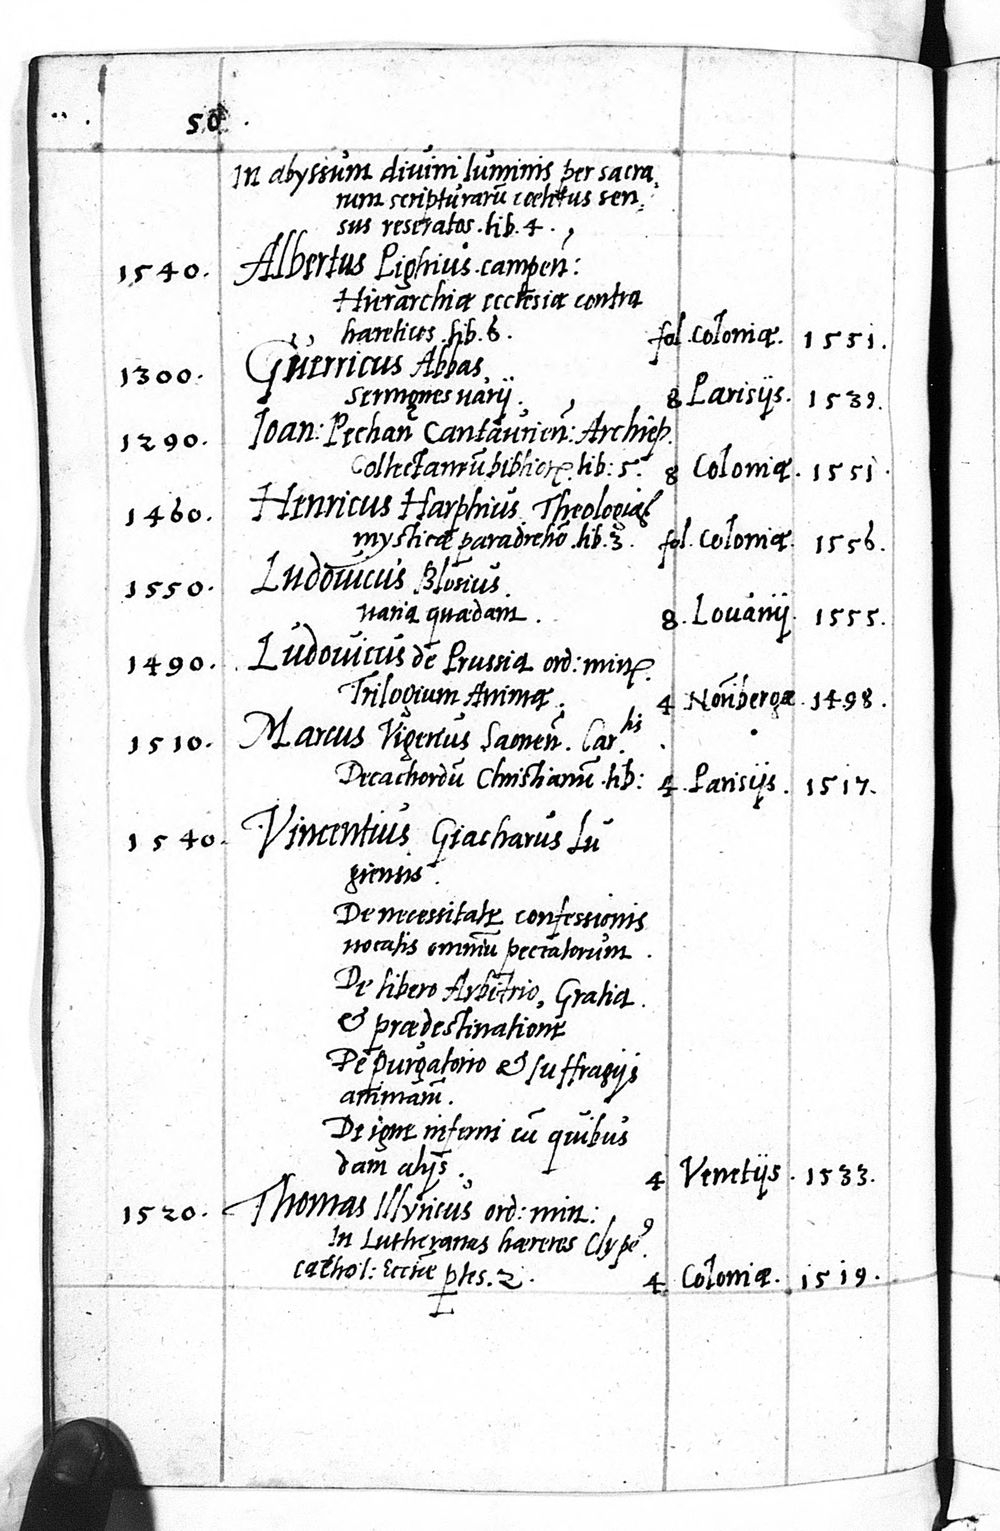 50
In abyssum divini luminis per sacra,
rum scripturarū coelitus sen,
sus reseratos. lib. 4.
1540. Albertus Pighius. campeñ:
Hierarchiæ ecclesiæ contra
hæreticos. lib. 6. fol. Coloniæ. 1551.
1300. Guerricus Abbas
Sermones varij. 8 Parisijs. 1539.
1290. Joan: Pechañ Cantaurieñ: Archiep.
Collectaneū biblior lib: 5. 8 Coloniæ. 1551.
1460. Henricus Harphius. Theologiæ
mysticæ paradrehō. lib. 3. fol. Coloniæ. 1556.
1550. Ludovicus Blosius.
varia quædam. 8. Lovanij. 1555.
1490. Ludovicus de Prussia ord: min.
Trilogium Animæ. 4 Noribergæ. 1498.
1510. Marcus Vigerius Saoneñ. Car.lis
Decachordū Christianū. lib: 4. Parisijs. 1517.
1540. Vincentius Giacharus Lu
giensis.
De necessitate confessionis
vocalis omniū peccatorum.
De libero Arbitrio, Gratia.
& prædestinatione
De purgatorio & suffragijs
animarū.
De igne inferni cū quibus
dam alijs. 4 Venetijs. 1533.
1520. Thomas Illyricus ord: min:
In Lutheranas hæreses Clype9.
cathol: Eccl̄iæ ptes. 2. 4 Coloniæ. 1519.